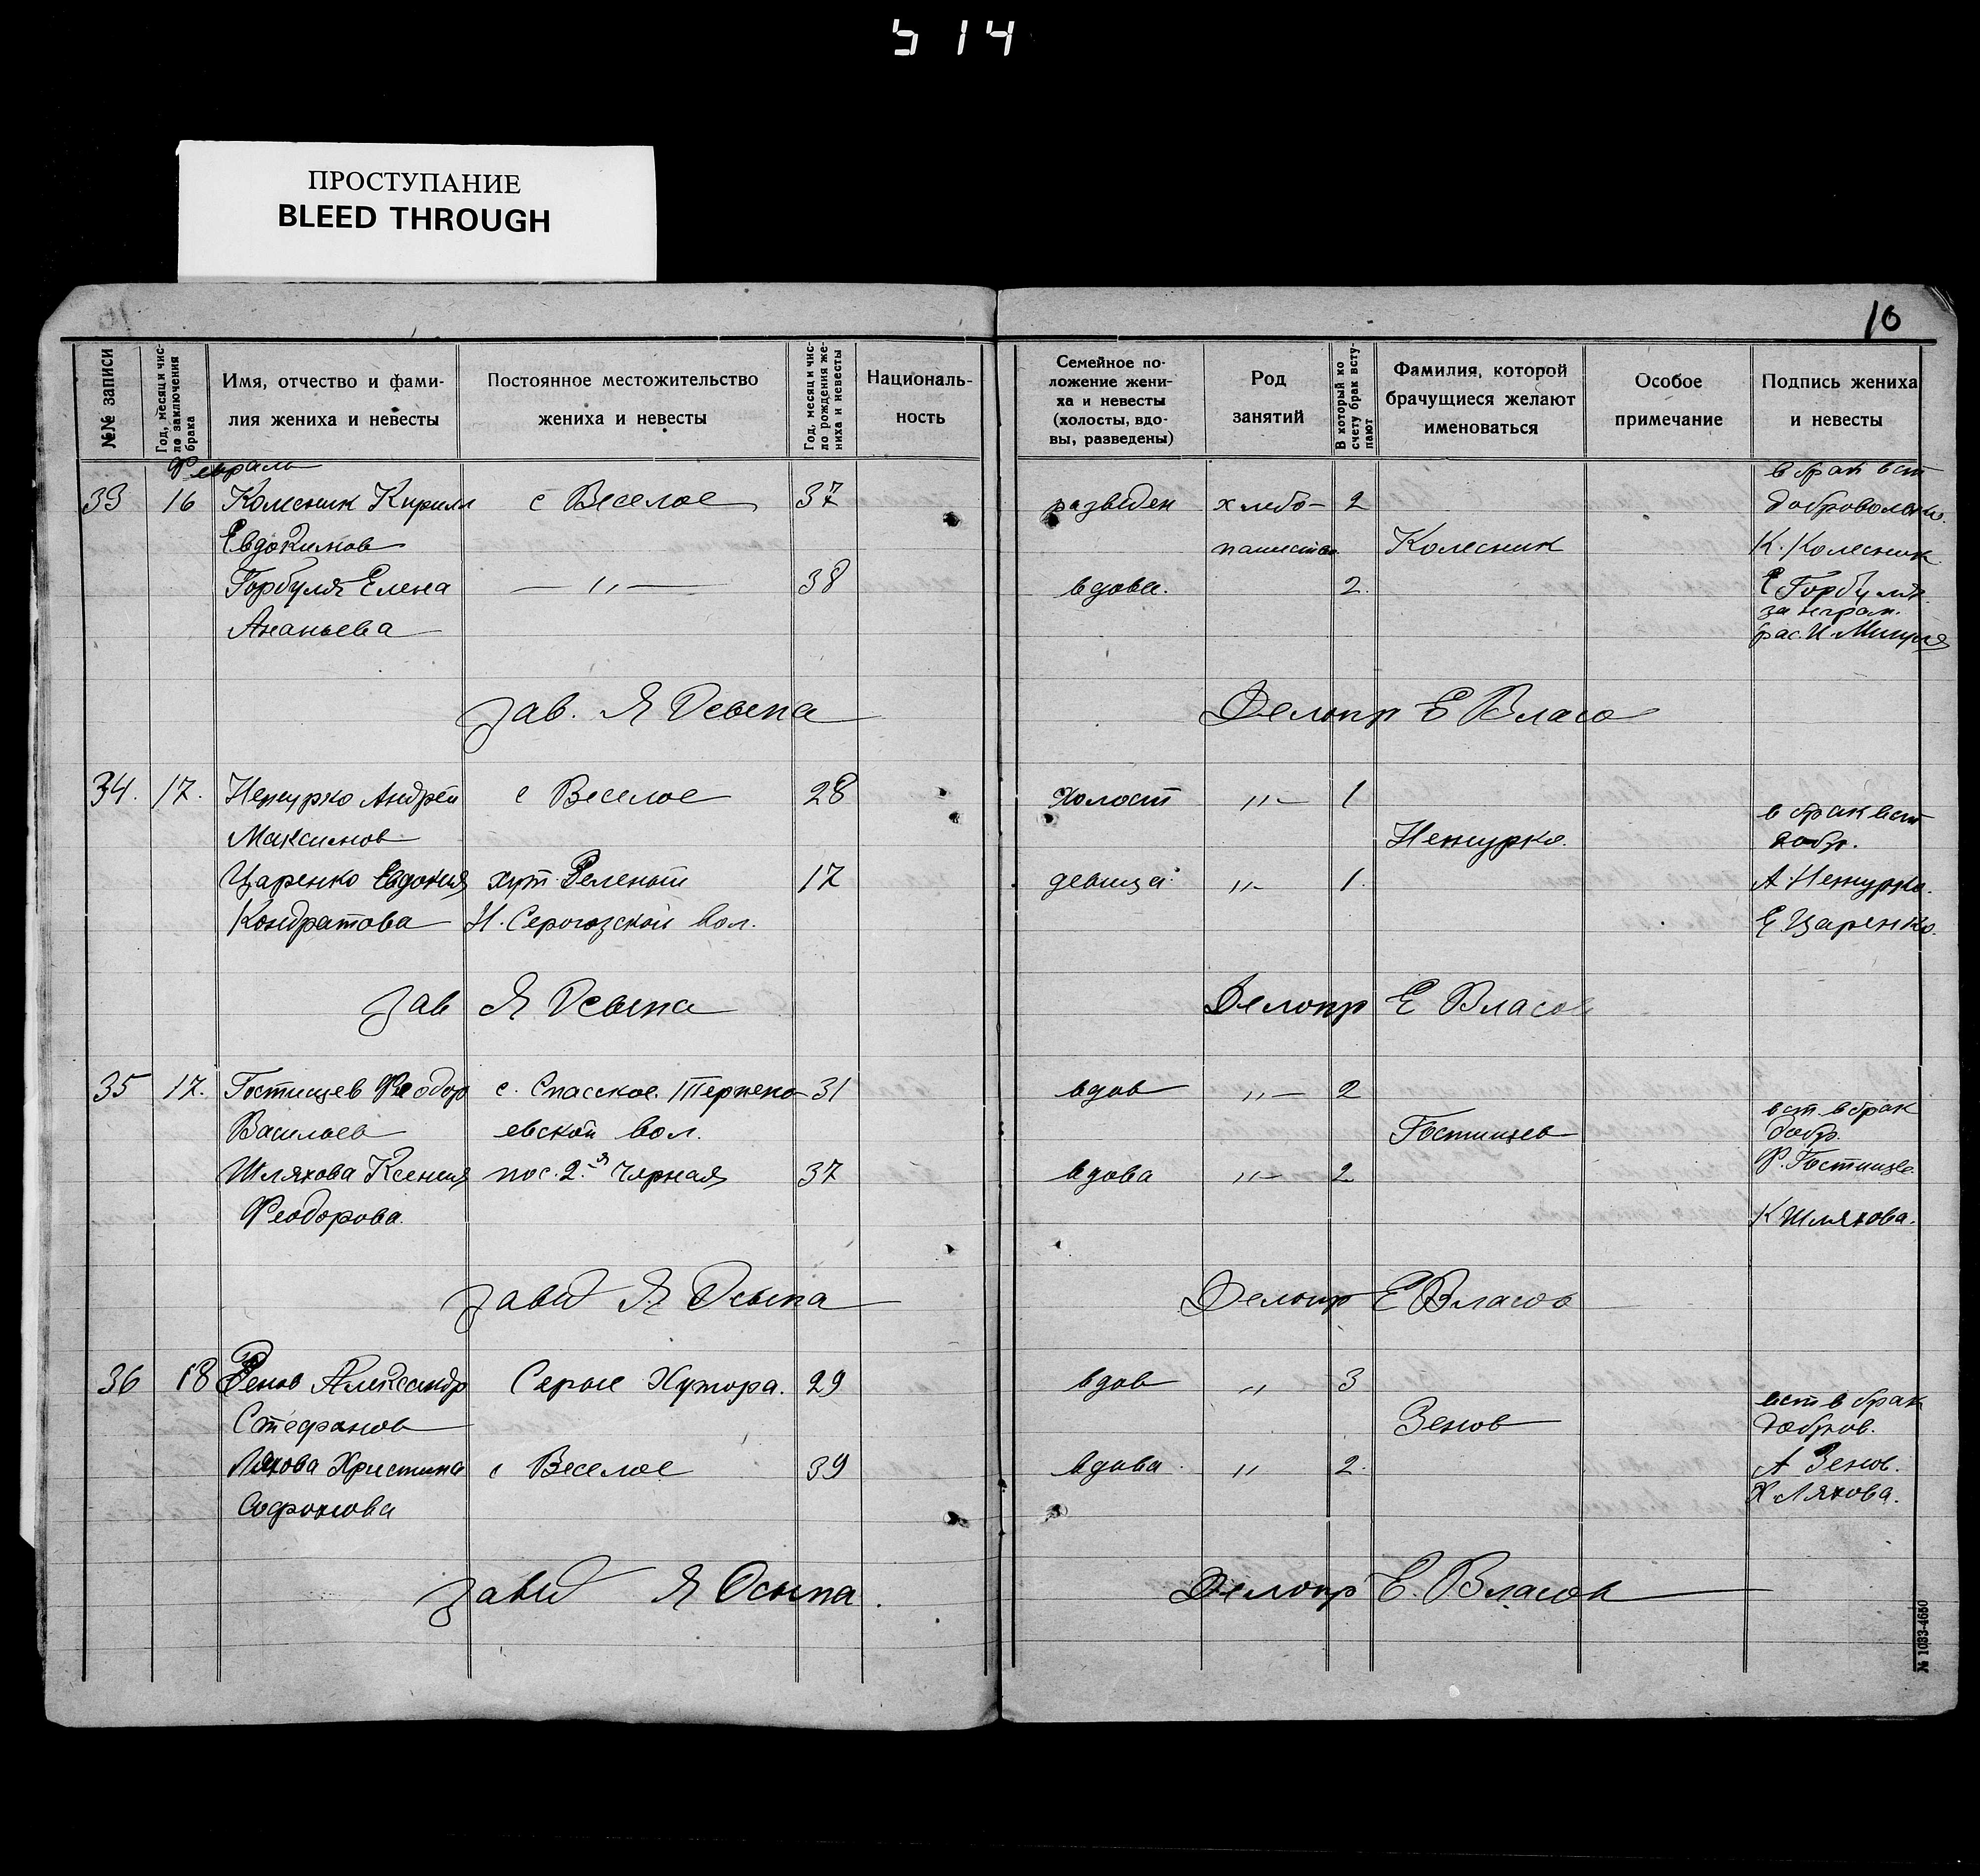 514
ПРОСТУПАНИЕ
BLEED THROUGH
10
№№ записи
Год, месяц и чис-
ло заключения
брака
Имя, отчество и фами-
лия жениха и невесты
Постоянное местожительство
жениха и невесты
Год, месяц и чис-
ло рождения же-
ниха и невесты
Националь-
ность
Семейное по-
ложение жени-
ха и невесты
(холосты, вдо-
вы, разведены)
Род
занятий
В который по
счету брак всту-
пают
Фамилия, которой
брачущиеся желают
именоваться
Особое
примечание
Подпись жениха
и невесты
Февраль
в брак вст
33 16 Колесник Кирилл с Веселое 37 разведен хлебо- 2 добровольно.
Евдокимов пашество. Колесник К. Колесник
Горбуля Елена — " — 38 вдова. 2. Е Горбуля.
за неграм.
Ананьева рас. И
Зав. Я Осыпа Делопр Е Власо
34. 17. Андрей с Веселое 28 Холост "- 1
в брак вст
Максимов добр.
Царенко Евдокия хут. Зеленый 17 девица "- 1. А
Кондратова Н. Серогозской вол. Е. Царенко.
Зав Я Осыпа Делопр Е Власов
35 17. Гостищев Феодор с. Спасское. Терпено- 31 вдов "- 2
вст. в брак
Васильев евской вол. Гостищев добр.
Шляхова Ксения пос. 2-я Чорная 37 вдова "- 2 Ф. Гостищев
Феодорова. К Шляхова.
Завед Я. Осыпа Делопр Е Власов
36 18 Зенов Александр Серые Хутора. 29 вдов " 3
вст в брак
Стефанов Зенов добров.
Ляхова Христина с Веселое 39 вдова. " 2. А Зенов.
Х Ляхова.
Софронова
Завед Я Осыпа. Делопр Е. Власов
№ 1033-4650